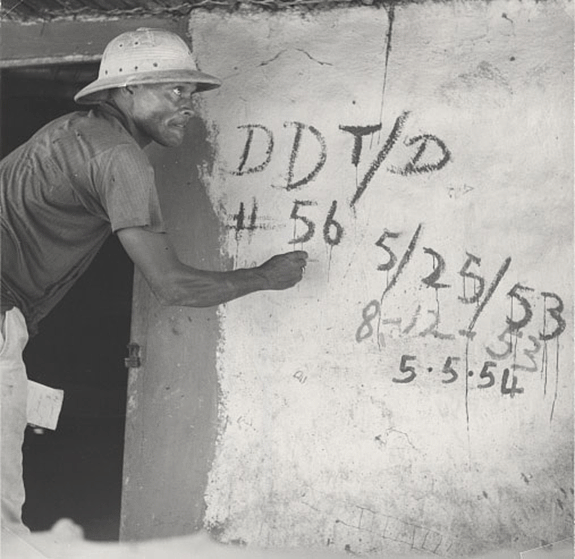 DDT/D
# 56
5/25/53
8-12-53
5.5.54